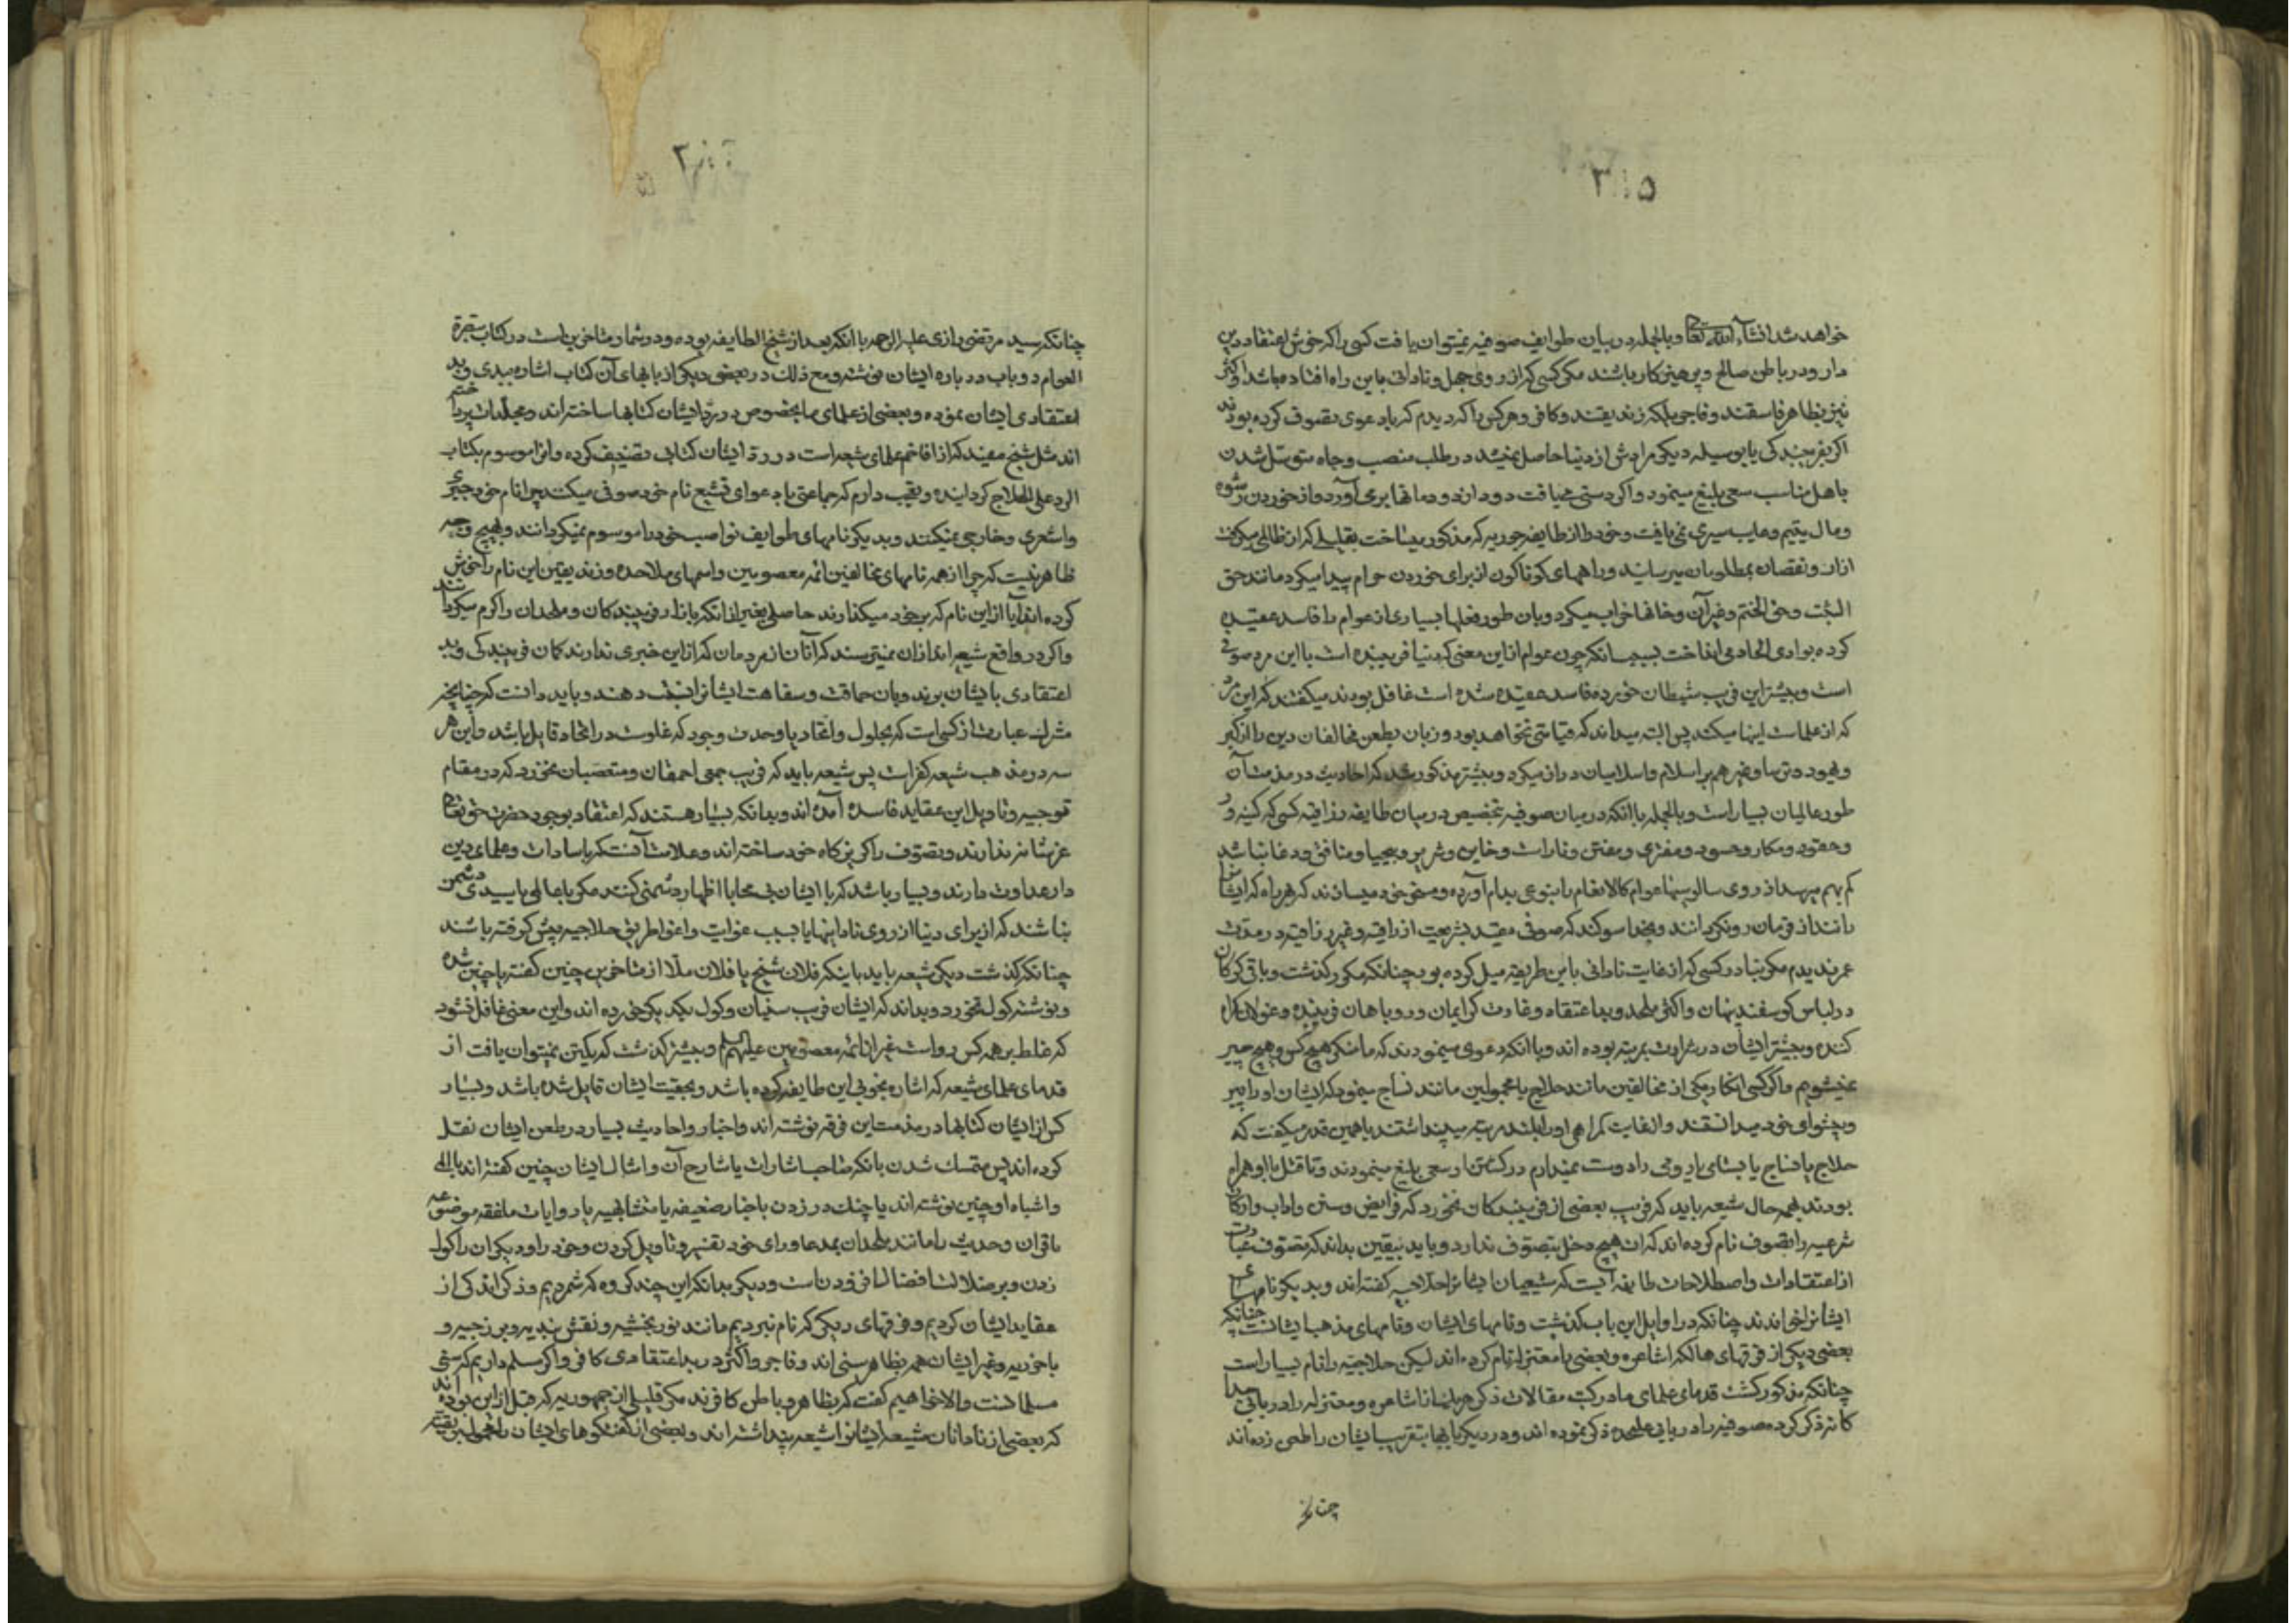 ۳۰۵
خواهد شد انشاء الله تعالی و بالجمله در میان طوایف صوفیه نمیتوان یافت کسی را که خوش اعتقاد دین
دار و در باطن صالح و پرهیزکار باشند مگر کسی که از روی جهل و نادانی باین راه افتاده باشد و اکثر
نیز بظاهر فاسقند و فاجر بلکه زندیقند و کافر و هر کس را که دیدم که با دعوی تصوف کرده بودند
اگر بفریبندگی یا بوسیله دیگر مرادش از دنیا حاصل نمیشد در طلب منصب و جاه متوسل شدن
باهل مناسب سعی بلیغ مینمود و اگر دستی مییافت دود از دودمانها برمی آورد و از خوردن رشوه
و مال یتیم و غایب سیری نمی یافت و خود را از طایفه جوریه که مذکور میساخت بقلیلی که از ظالمی میگرفت
ازار و نقصان بمظلومان میرسانید و راههای گوناگون از برای خوردن حرام پیدا میکرد مانند حق
البت و حق الختم و غیر آن و خانها خراب میکرد و بان طور فعلها بسیاری از عوام را فاسد عقیده
کرده بوادی الحاد می انداخت بسبب انکه چون عوام از این معنی که دنیا فریبنده است با این مرد صوفی
است و بیشتر این فریب شیطان خورده فاسد عقیده شده است غافل بودند میگفتند که این مرد
که از علماست اینها میکند پس البته میداند که قیامتی نخواهد بود و زبان بطعن مخالفان دین را از گبر
و یهود و ترسا و غیر هم بر اسلام و اسلامیان دراز میکرد و بیشتر مذکور شد که احادیث در مذمت آن
طور عالمان بسیار است و بالجمله با انکه در میان صوفیه تخصیص در میان طایفه رزاقیه کسی که کینه ور
و حقود و مکار و حسود و مفتری و مفتن و ناراست و خاین و شریر و بیحیا و منافق و دغا نباشد
کم بهم میرسد از روی سالوسیها عوام کالانعام را بنوعی بدام آورده و مسخر خود میسازند که هر راه که ایشان
رانند از فرمان رو نگردانند و بخدا سوگند که صوفی مقید بشریعت از رزاقیه و غیر رزاقیه در مدت
عمر ندیدم مگر بنادر کسی که از غایت نادانی باین طریقه میل کرده بود چنانکه مکرر گذشت و باقی گرگان
در لباس گوسفند پنهان و اکثر ملحد و بد اعتقاد و غارت گر ایمان و روباهان فریبنده و غولان گمراه
کننده و بیشتر ایشان در شرارت بمرتبه بوده اند و با انکه دعوی مینمودند که ما منکر هیچ کس و هیچ چیز
نمیشویم و اگر کسی انکار یکی از مخالفین مانند حلاج یا مجهولین مانند نساج مینمود که ایشان او را پیر
و پیشوای خود میدانستند و الغایت گمراهی او را بلند مرتبه میپنداشتند یا همین قدر میگفت که
حلاج یا نساج یا بسطامی یا رومی را دوست نمیدارم در کشتن او سعی بلیغ مینمودند و تا قتل با او همراه
بودند بهمه حال شیعه باید که فریب بعضی از فریبندکان نخورد که فرایض و سنن و اداب و ارکان
شرعیه را تصوف نام کرده اند که ان هیچ دخل بتصوف ندارد و باید بیقین بداند که تصوف عبارت
از اعتقادات و اصطلاحات طایفه ایست که شیعیان ایشانرا حلاجیه گفته اند و بدیگر نامهای
ایشانرا خوانده اند چنانکه در اوایل این باب گذشت و نامهای ایشان و نامهای مذهب ایشانست چنانکه
بعضی دیگر از فرقهای هالکه را اشاعره و بعضی را معتزله نام کرده اند لیکن حلاجیه را نام بسیار است
چنانکه مذکور گشت قدمای علمای ما در کتب مقالات ذکر هر یک از اشاعره و معتزله را در بابی جدا
کانه ذکر کرده صوفیه را در بابی علیحده ذکر نموده اند و در دیگر بابها بتقریب ایشان را طعن زده اند
چنانکه
۳۰۶
چنانکه سید مرتضی رازی علیه الرحمه با انکه بعد از شیخ الطایفه بوده و در شمار متاخرین است در کتاب تبصرة
العوام دو باب در باره ایشان نوشته و مع ذلک در بعضی دیگر از بابهای آن کتاب اشاره ببدی و بد
اعتقادی ایشان نموده و بعضی از علمای ما بخصوص در رد ایشان کتابها ساخته اند و مجلدات پرداخته
اند مثل شیخ مفید که از افاخم علمای شیعه است در رد ایشان کتابی تصنیف کرده و انرا موسوم بکتاب
الرد علی الحلاج گردانیده و تعجب دارم که جماعتی با دعوای تشیع نام خود صوفی میکنند چرا نام خود جبری
و اشعری و خارجی نمیکنند و بدیگر نامهای طوایف نواصب خود را موسوم نمیگردانند و بهیچ وجه
ظاهر نیست که چرا از همه نامهای مخالفین ائمه معصومین و اسمهای ملاحده و زندیقین این نام را خوش
کرده اند ایا از این نام که بر خود میگذارند حاصلی بغیر از انکه بازار فریبندکان و ملحدان را گرم میگردانند
و اگر در واقع شیعه اند از ان نمیترسند که آنان از مردمان که از این خبری ندارند گمان فریبندگی و بد
اعتقادی بایشان برند و بان حماقت و سفاهت ایشانرا نسبت دهند و باید دانست که چنانچه
مشرک عبارت از کسی است که بحلول و اتحاد یا وحدت وجود که غلوست در اتحاد قایل باشد و این هر
سه در مذهب شیعه کفر است پس شیعه باید که فریب جمعی احمقان و متعصبان نخورد که در مقام
توجیه و تاویل این عقاید فاسده آمده اند و بدانکه بسیار هستند که اعتقاد بوجود حضرت حق تعالی
عز شانه ندارند و تصوف را گریزگاه خود ساخته اند و علامت آنست که با سادات و علمای دین
دار عداوت دارند و بسیار باشد که با ایشان بی محابا اظهار دشمنی کنند مگر با عالمی یا سیدی دشمن
نباشند که از برای دنیا از روی نادانیها یا بسبب غوایت و اغوا طریق حلاجیه پیش گرفته باشند
چنانکه گذشت دیگر شیعه باید باینکه فلان شیخ یا فلان ملا از متاخرین چنین گفته یا چنین شده
و نوشته گول نخورد و بداند که ایشان فریب سنیان و گول یکدیگر خورده اند و این معنی غافل نشود
که غلط بر همه کس رواست غیر از ائمه معصومین علیهم السلم و بیشتر گذشت که یکتن نمیتوان یافت از
قدمای علمای شیعه که اشاره بخوبی این طایفه کرده باشد و بحقیت ایشان قایل شده باشد و بسیار
کس از ایشان کتابها در مذمت این فرقه نوشته اند و اخبار و احادیث بسیار در طعن ایشان نقل
کرده اند پس متمسک شدن بانکه صاحب اشارات یا شارح آن و امثال ایشان چنین گفته اند یا
و اشباه او چنین نوشته اند یا چنک در زدن باخبار ضعیفه یا متشابهیه یا روایات ملفقه موضوعه
یا قران و حدیث را مانند ملحدان بمدعا و رای خود تفسیر و تاویل کردن و خود را و دیگران را گول
زدن و بر ضلالت افضالت افزودنست و دیگر بدانکه این چند گروه که شمردیم و ذکر اندکی از
عقاید ایشان کردیم و فرقهای دیگر که نام نبردیم مانند نوربخشیه و نقش بندیه و برزجیه و
باخرزیه و غیر ایشان همه بظاهر سنی اند و فاجر و اکثر در بد اعتقادی کافر و اگر مسلم داریم که سنی
مسلمانست و الا خواهیم گفت که بظاهر و باطن کافرند مگر قلیلی از جمهوریه که قبل از این بوده اند
که بعضی از نادانان شیعه ایشانرا شیعه پنداشته اند و بعضی از گفتگوهای ایشان را محمول بر تقیه